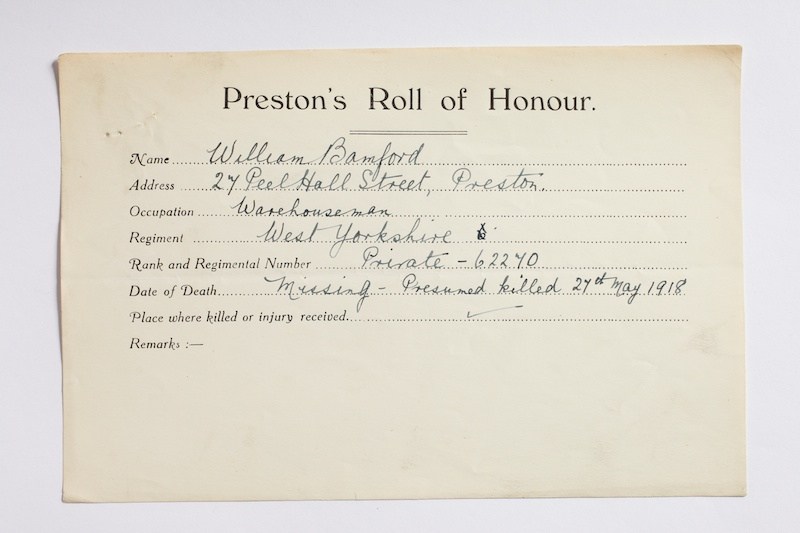 Preston's Roll of Honour.
Name William Bamford
Address 27 Peel Hall Street, Preston.
Occupation Warehouseman
Regiment West Yorkshire
Rank and Regimental Number Private - 62270
Date of Death Missing - Presumed killed 27th May 1918
Place where killed or injury received.
Remarks :—